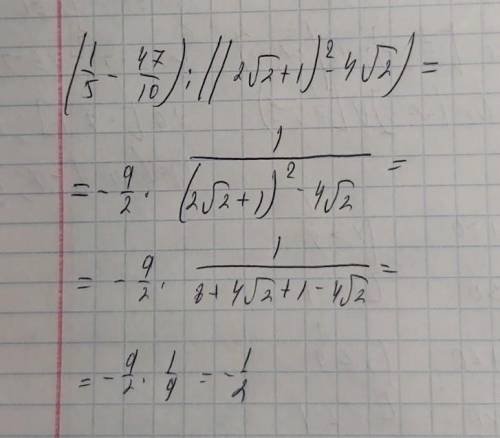 (1/5 - 47/10) : ((2√2+1)² - 4√2) =
= - 9/2 · 1/((2√2+1)² - 4√2) =
= - 9/2 · 1/(8+4√2+1-4√2) =
= - 9/2 · 1/9 = - 1/2